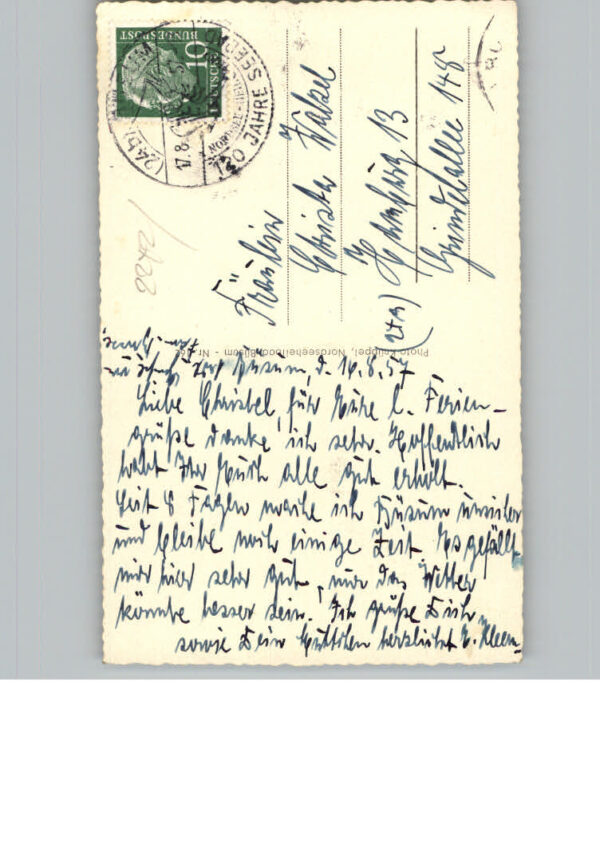 10
DEUTSCHE
BUNDESPOST
(24b)
17.8.
NORDSEE-
120 JAHRE SEEB
2242
Fräulein
Christa
Hamburg 13
Grindelallee 148
(24a)
Photo Knüppel, Nordseeheilbad Büsum - Nr.
Büsum, d. 16.8.57
Liebe Christel, für Eure l. Ferien-
grüße danke ich sehr. Hoffentlich
habt Ihr Euch alle gut erholt.
Seit 8 Tagen mache ich Büsum unsicher
und bleibe noch einige Zeit. Es gefällt
mir hier sehr gut, nur das Wetter
könnte besser sein. Ich grüße Dich
sowie Dein Muttchen herzlichst